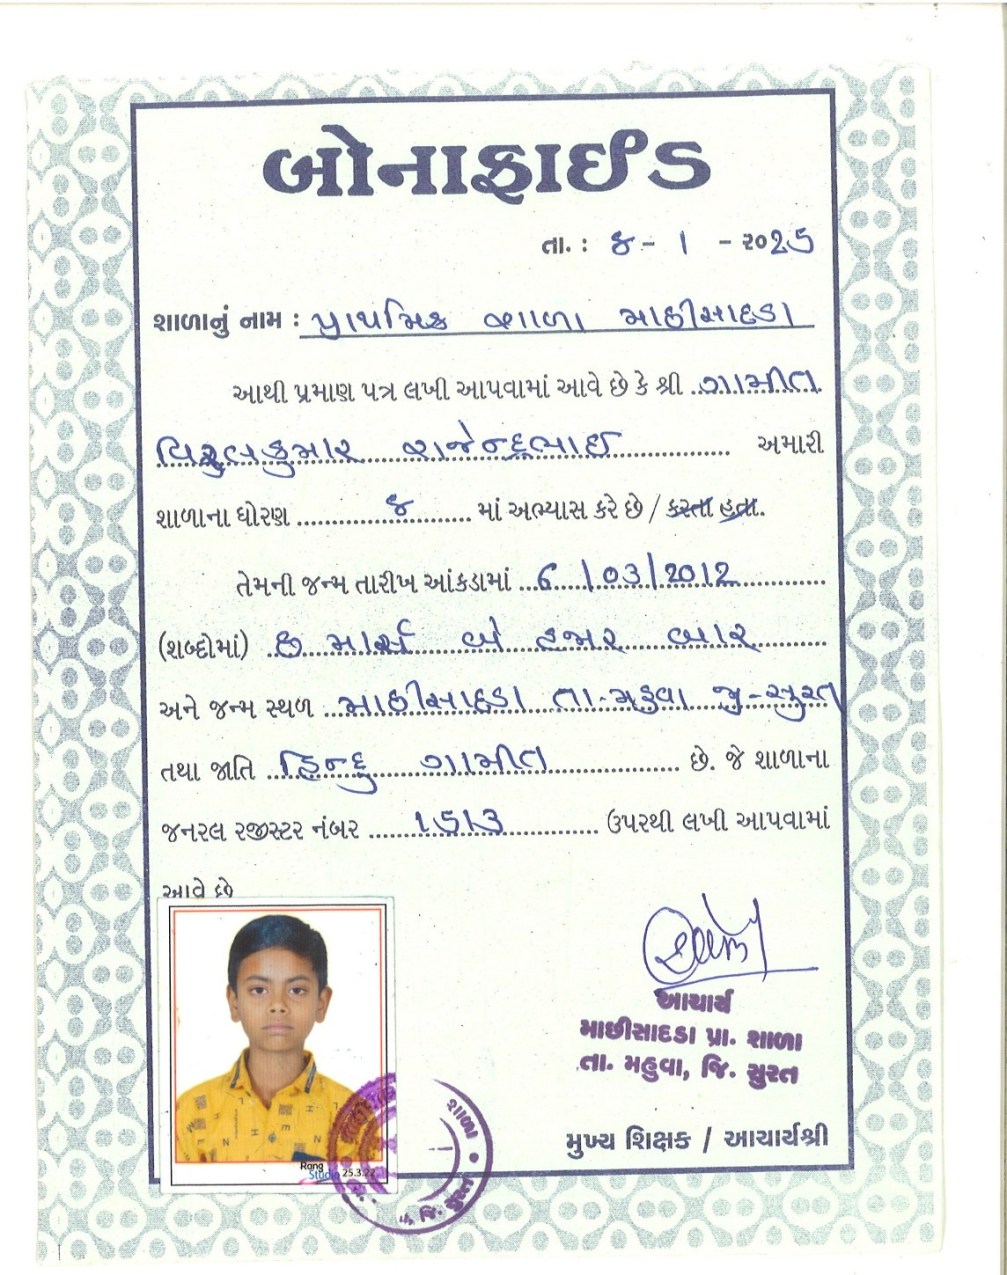 બોનાફાઈડ
તા. : ૪ - ૧ - ૨૦૨૫
શાળાનું નામ : પ્રાથમિક શાળા માછીસાદડા
આથી પ્રમાણ પત્ર લખી આપવામાં આવે છે કે શ્રી ગામીત
કુમાર રાજેન્દ્રભાઈ અમારી
શાળાના ધોરણ ૪ માં અભ્યાસ કરે છે / કરતા હતા.
તેમની જન્મ તારીખ આંકડામાં 6/03/2012
(શબ્દોમાં) છ માર્ચ બે હજાર બાર
અને જન્મ સ્થળ માછીસાદડા તા-મહુવા જી-સુરત
તથા જાતિ હિન્દુ ગામીત છે. જે શાળાના
જનરલ રજીસ્ટર નંબર 1513 ઉપરથી લખી આપવામાં
આવે છે
આચાર્ય
માછીસાદડા પ્રા. શાળા
તા. મહુવા, જિ. સુરત
મુખ્ય શિક્ષક / આચાર્યશ્રી
Rang
Studio 25.3.22
શાળા
જિ. સુરત